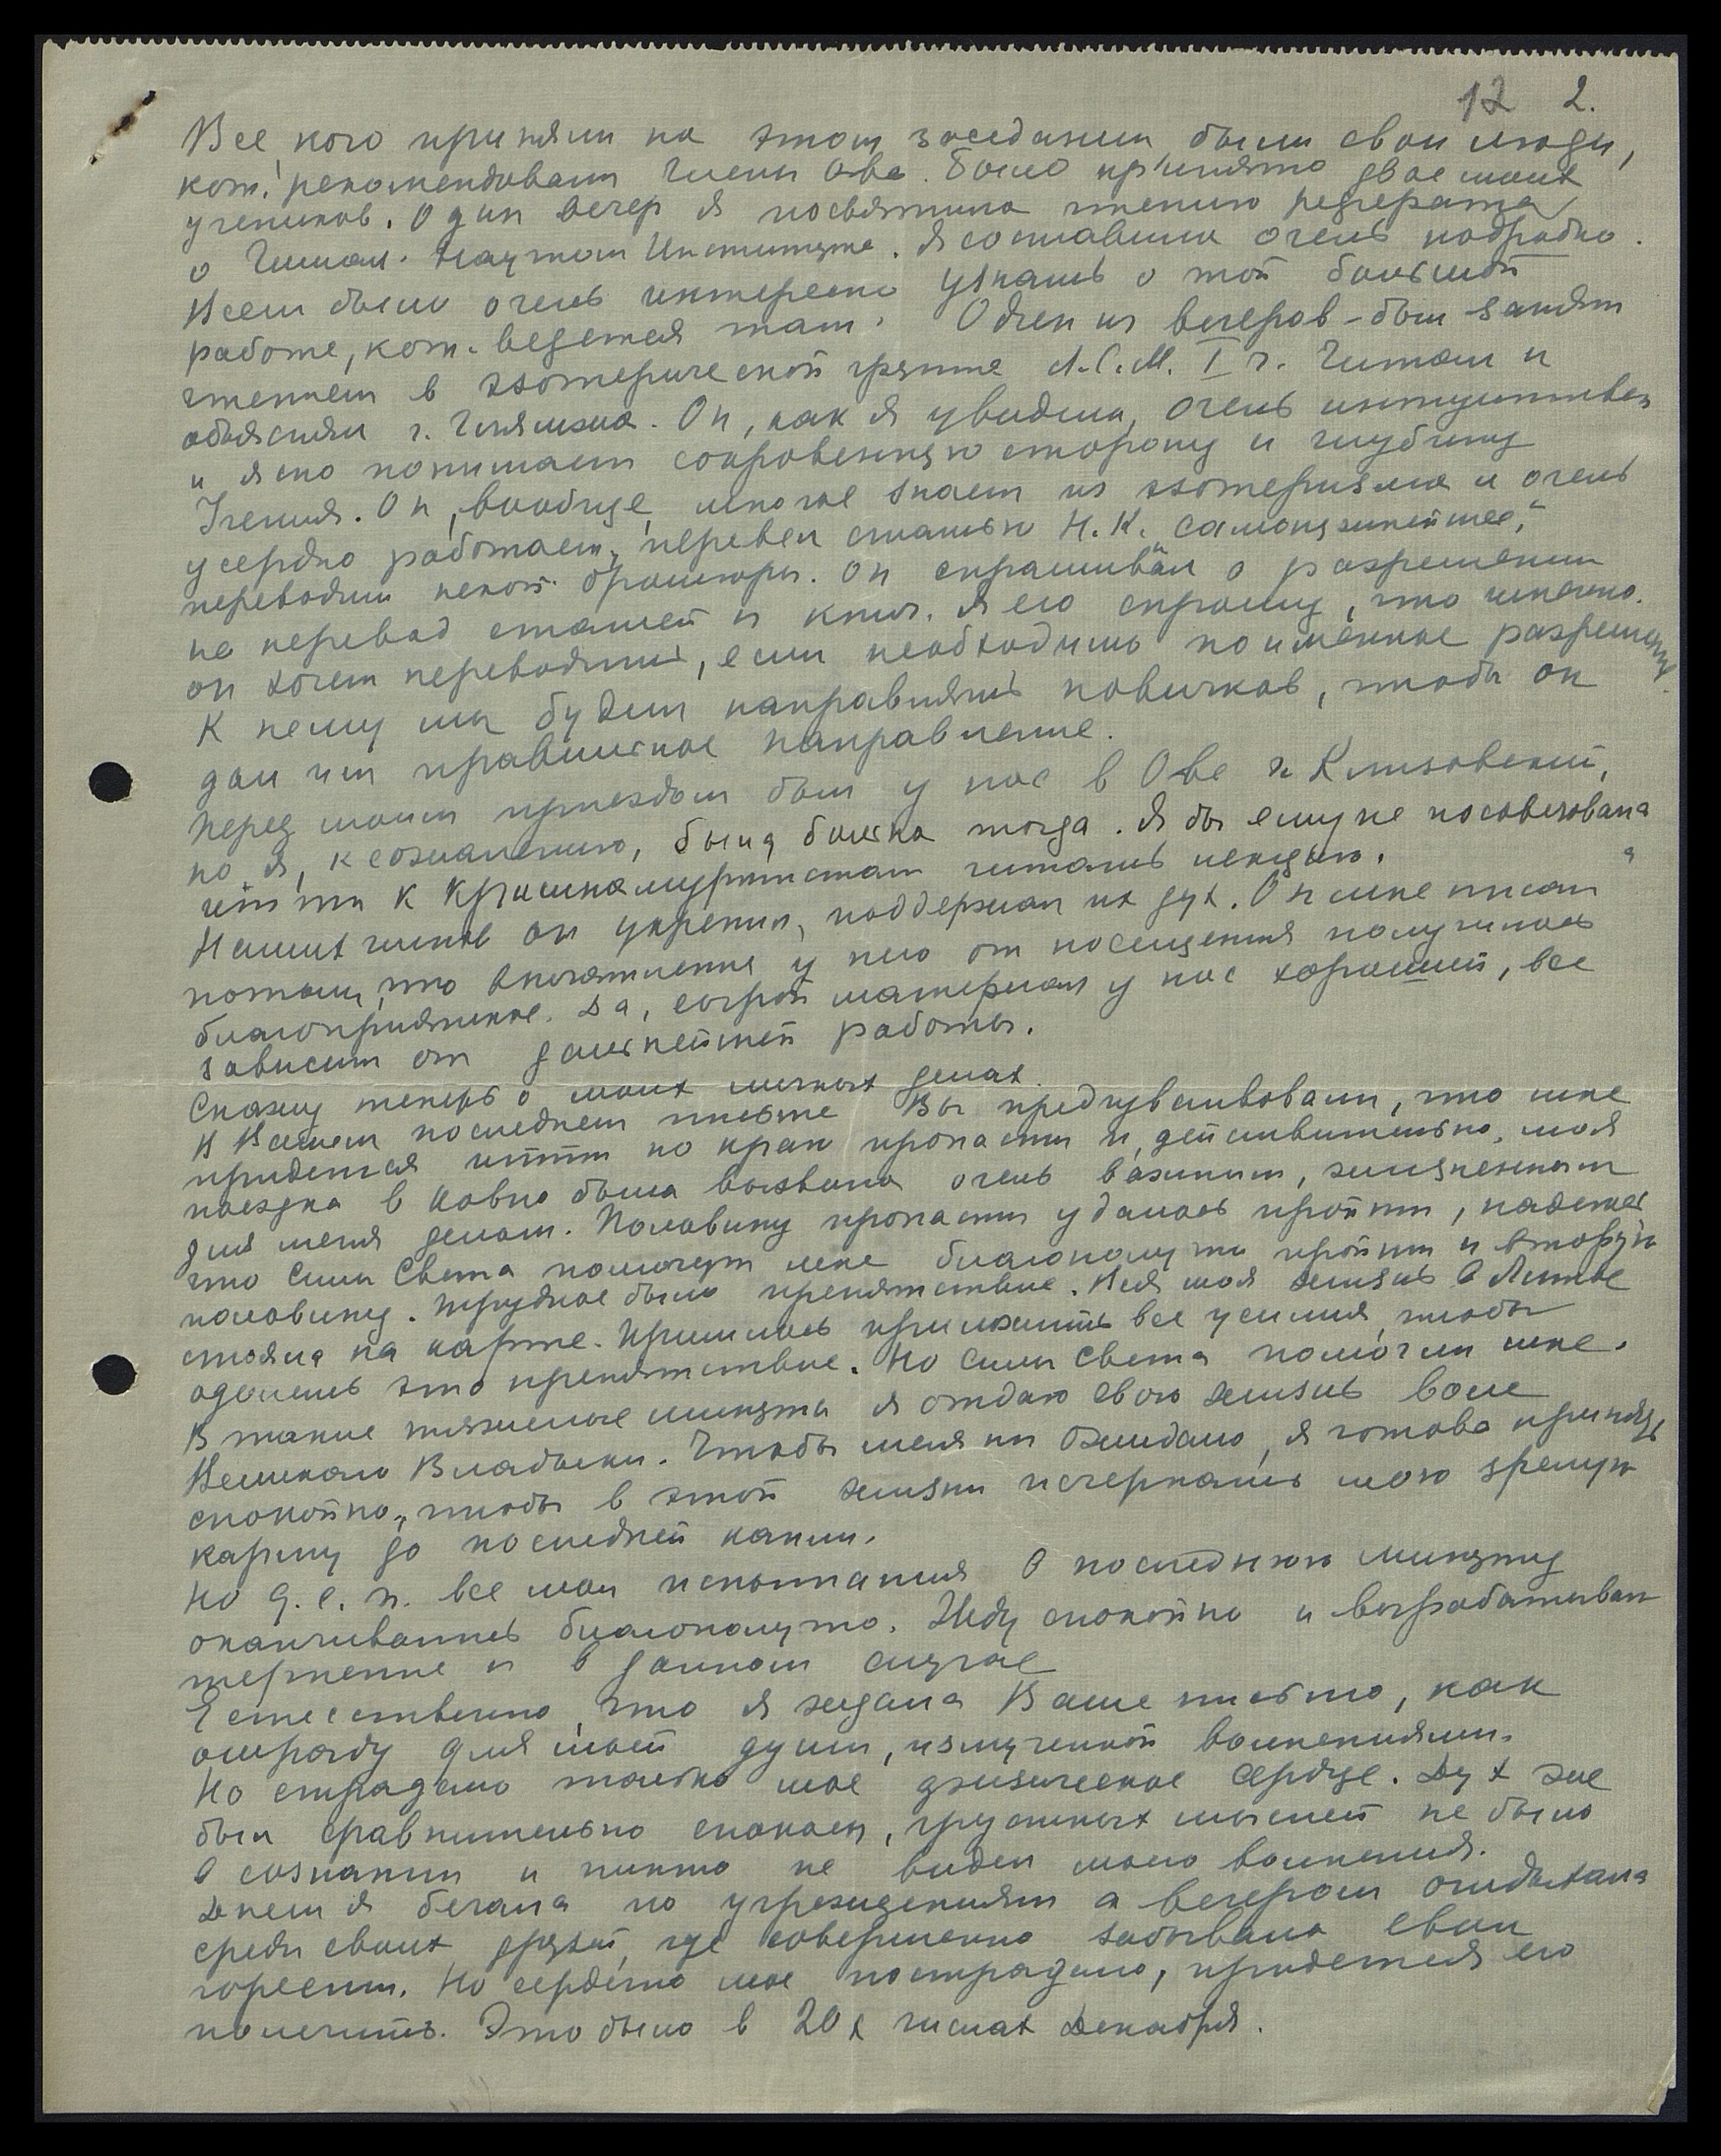 12 2.
Все, кого приняли на этом заседании, были свои люди,
кот. рекомендовали члены О-ва. Было принято двое моих
учеников. Один вечер я посвятила чтению реферата
о Гимал. Научном Институте. Я составила очень подробно.
Всем было очень интересно узнать о той большой
работе, кот. ведется там. Один из вечеров - был занят
чтением в эзотерической группе Л.С.М. I ч. Читал и
объяснял г. Он, как я увидела, очень интуитивен
и ясно понимает сокровенную сторону и глубину
Учения. Он, вообще, многое знает из эзотеризма и очень
усердно работает, перевел статью Н.К. „Самоцветнейшее“,
переводит некот. брошюры. Он спрашивал о разрешении
на перевод статей и книг. Я его спрошу, что именно
он хочет переводить, если необходимо поимённое разрешение.
К нему мы будем направлять новичков, чтобы он
дал им правильное направление.
Перед моим приездом был у нас в О-ве г. Клизовский,
но я, к сожалению, была больна тогда. Я бы ему не посоветовала
итти к Кришнамуртистам читать лекцию.
Наших членов он укрепил, поддержал их дух. Он мне писал
потом, что впечатление у него от посещения получилось
благоприятное. Да, сырой материал у нас хороший, все
зависит от дальнейшей работы.
Скажу теперь о моих личных делах.
В Вашем последнем письме Вы предчувствовали, что мне
придется итти по краю пропасти и, действительно, моя
поездка в Ковно была вызвана очень важным, жизненным
для меня делом. Половину пропасти удалось пройти, надеюсь
что Силы Света помогут мне благополучно пройти и вторую
половину. Трудное было препятствие. Вся моя жизнь в Литве
стояла на карте. Пришлось приложить все усилия, чтобы
одолеть это препятствие. Но Силы Света помогли мне.
В такие тяжелые минуты я отдаю свою жизнь воле
Великого Владыки. Что-бы меня ни ожидало, я готова принять
спокойно, чтобы в этой жизни исчерпать мою зрелую
карму до последней капли.
Но д.с.п. все мои испытания в последнюю минуту
оканчивались благополучно. Жду спокойно и вырабатываю
терпение и в данном случае
Естественно, что я ждала Ваше письмо, как
отраду для моей души, измученной волнениями.
Но страдало только мое физическое сердце. Дух же
был сравнительно спокоен, грустных мыслей не было
в сознании и никто не видел моего волнения.
Днем я бегала по учреждениям а вечером отдыхала
среди своих друзей, где совершенно забывала свои
горести. Но сердечко мое пострадало, придется его
полечить. Это было в 20х числах Декабря.